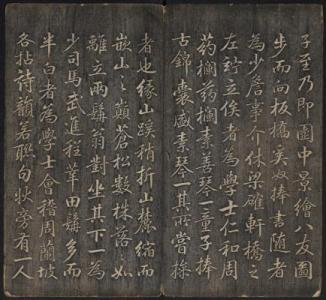 子至乃即圖中景繪八友圖
步而向板橋奚奴捧書随者
為少詹事介休梁確軒橋之
左竚俟者為學士仁和周
药欄药欄素善琴一童子捧
古錦囊盛素琴一其所當操
者也缘山蹊稍折山麓缩而
嵌山之巔蒼松數株落落如
離立兩鬅翁對坐其下一為
少司馬武進程莘田鬅多而
半白者為學士會稽周蘭坡
各拈詩韻若聯句状旁有一人